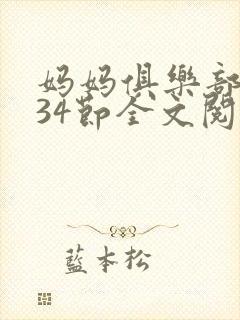 妈妈俱樂部
34節全文閱
藍本松